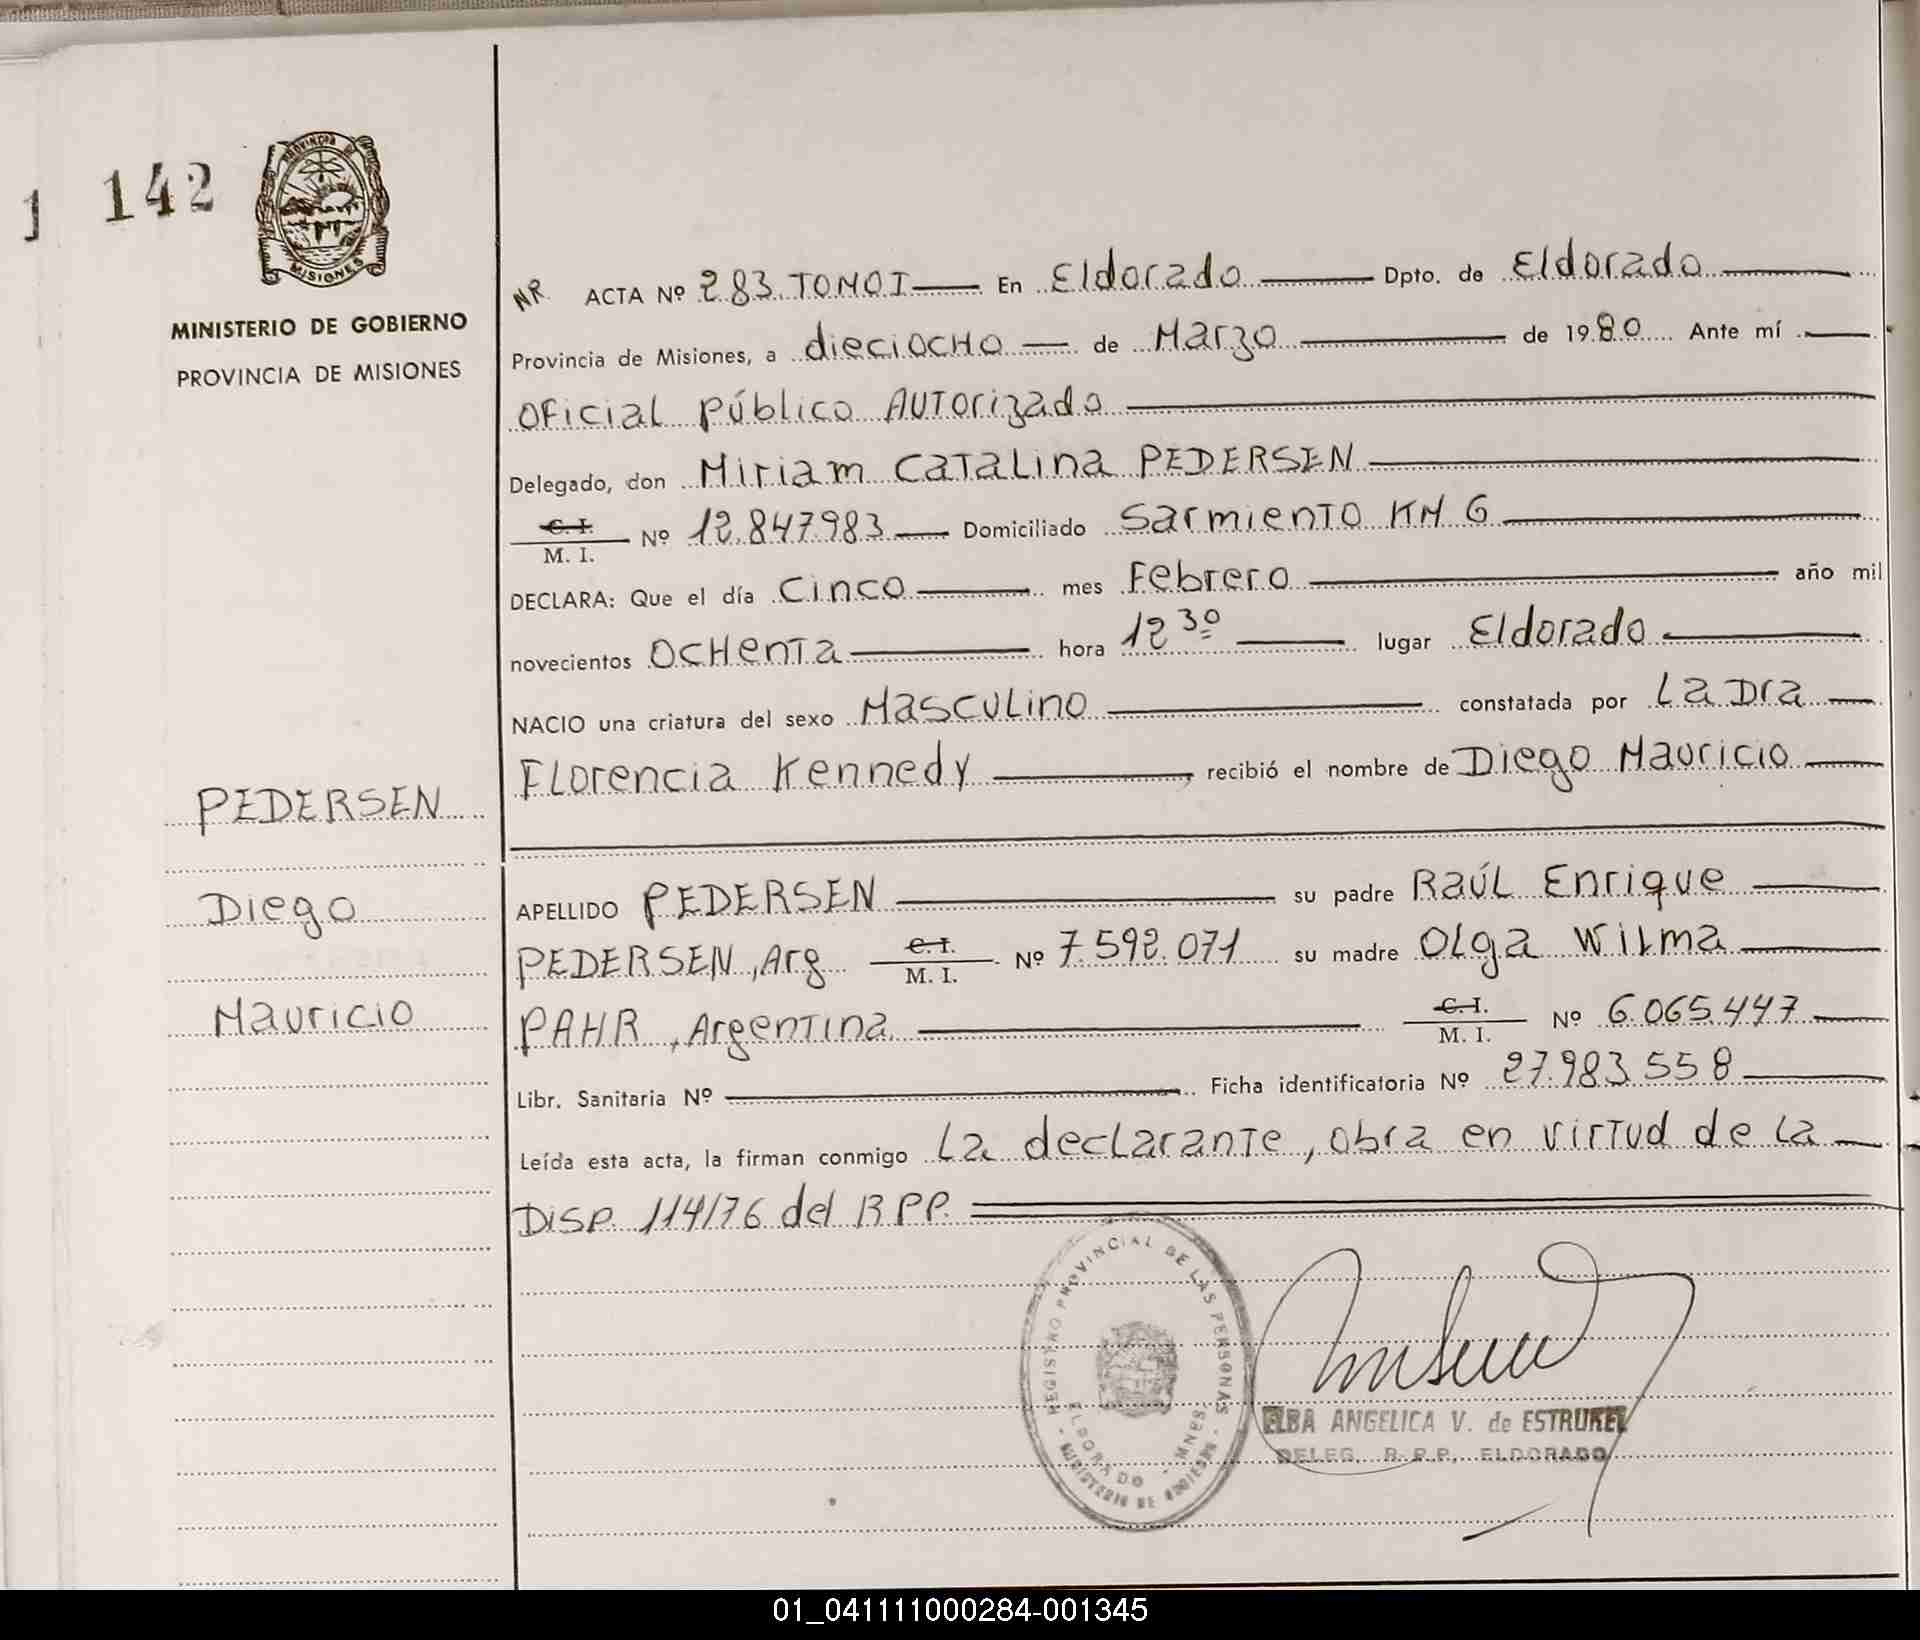 1 142
PROVINCIA DE
MISIONES
MINISTERIO DE GOBIERNO
PROVINCIA DE MISIONES
NR ACTA Nº 283 TOMO I En Eldorado Dpto. de Eldorado
Provincia de Misiones, a dieciocho de Marzo de 1980 Ante mí
Oficial Público Autorizado
Delegado, don Miriam Catalina PEDERSEN
C. I. M. I. Nº 12.847.983 Domiciliado Sarmiento KM 6
DECLARA: Que el día Cinco mes Febrero año mil
novecientos Ochenta hora 12 30 lugar Eldorado
NACIO una criatura del sexo Masculino constatada por La Dra
Florencia Kennedy recibió el nombre de Diego Mauricio
PEDERSEN
Diego
Mauricio
APELLIDO PEDERSEN su padre Raúl Enrique
PEDERSEN, Arg C. I. M. I. Nº 7.592.071 su madre Olga Wilma
PAHR, Argentina C. I. M. I. Nº 6.065.447
Libr. Sanitaria Nº Ficha identificatoria Nº 27.983.558
Leída esta acta, la firman conmigo La declarante, obra en virtud de la
Disp. 114/76 del RPP.
REGISTRO PROVINCIAL DE LAS PERSONAS
ELDORADO - MNES
MINISTERIO DE GOBIERNO
ELBA ANGELICA V. de ESTRUKEL
DELEG. R. P. P. ELDORADO
01_041111000284-001345